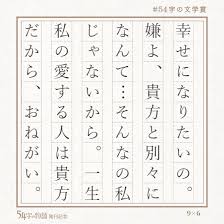 #54字の文学賞
幸せになりたいの。
嫌よ、貴方と別々に
なんて…そんなの私
じゃないから。一生
私の愛する人は貴方
だから、おねがい。
54字の物語
9×6